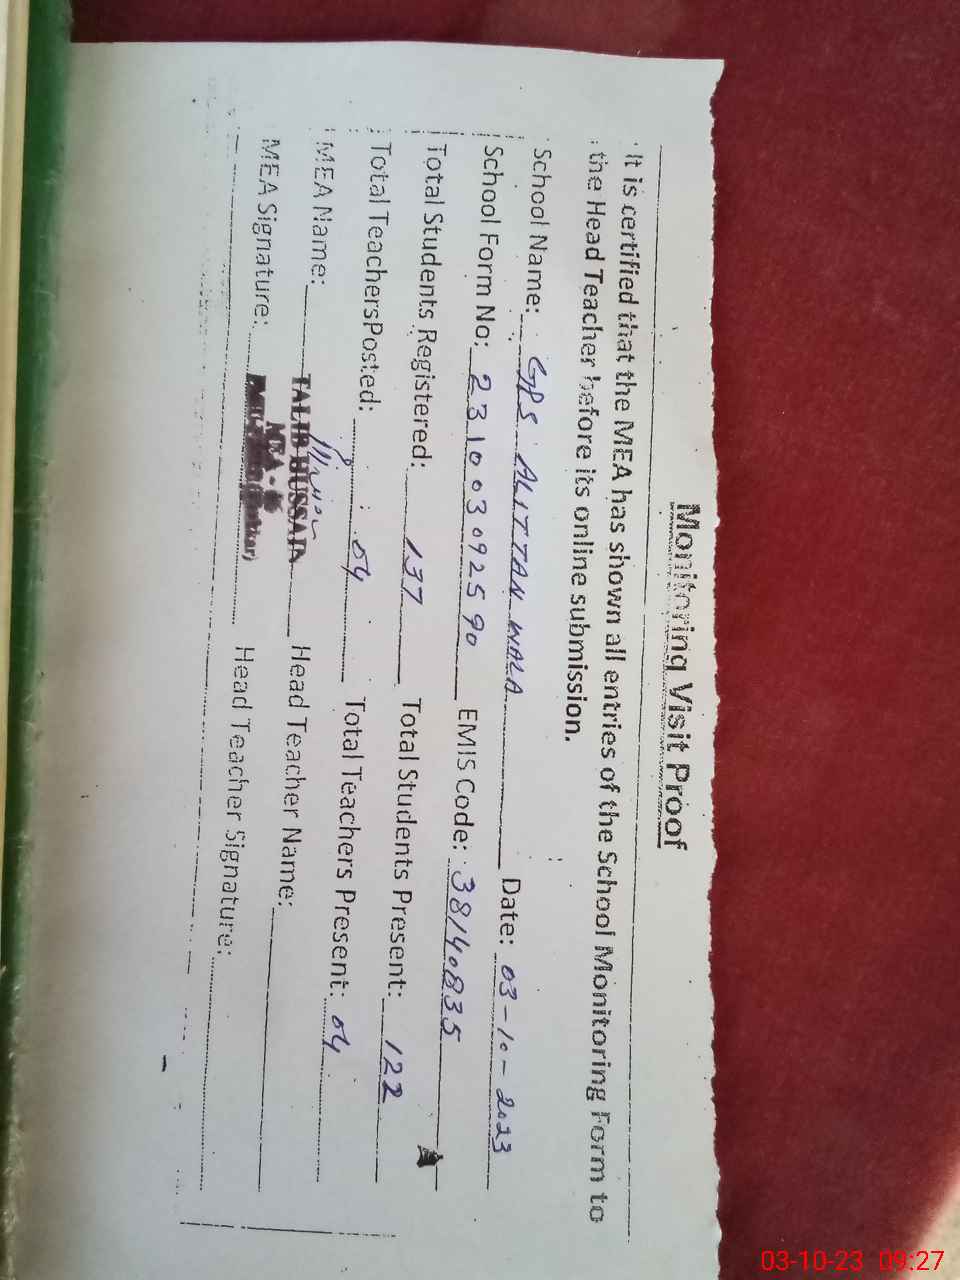 Monitoring Visit Proof
It is certified that the MEA has shown all entries of the School Monitoring Form to
the Head Teacher before its online submission.
School Name: GPS ALITTAN WALA Date: 03-10-2023
School Form No: 231003092590 EMIS Code: 38140835
Total Students Registered: 137 Total Students Present: 122
Total TeachersPosted: 04 Total Teachers Present: 04
MEA Name: TALIB HUSSAIN Head Teacher Name:
MEA Signature: MEA - Head Teacher Signature:
03-10-23 09:27